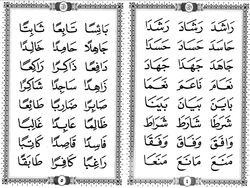 رَاشَدَ رَشَادَ رَشَدَا
حَاسَدَ حَسَادَ حَسَدَا
جَاهَدَ جَهَادَ جَهَدَا
نَاعَمَ نَعَمَا
بَايَنَ بَيَانَ بَيَنَا
شَارَطَ شَرَطَا
وَافَقَ وَفَاقَ وَفَقَا
مَانَعَ مَنَعَا
بَائِسًا تَابِعًا ثَابِتًا
جَاهِلًا حَامِضًا خَالِدًا
ذَاكِرًا رَاكِعًا
زَاهِدًا سَاجِدًا شَاكِرًا
صَابِرًا ضَارِبًا طَائِعًا
ظَالِمًا عَابِدًا غَالِبًا
فَاسِدًا قَاعِدًا
رَاغِبًا كَافِرًا طَابَقًا